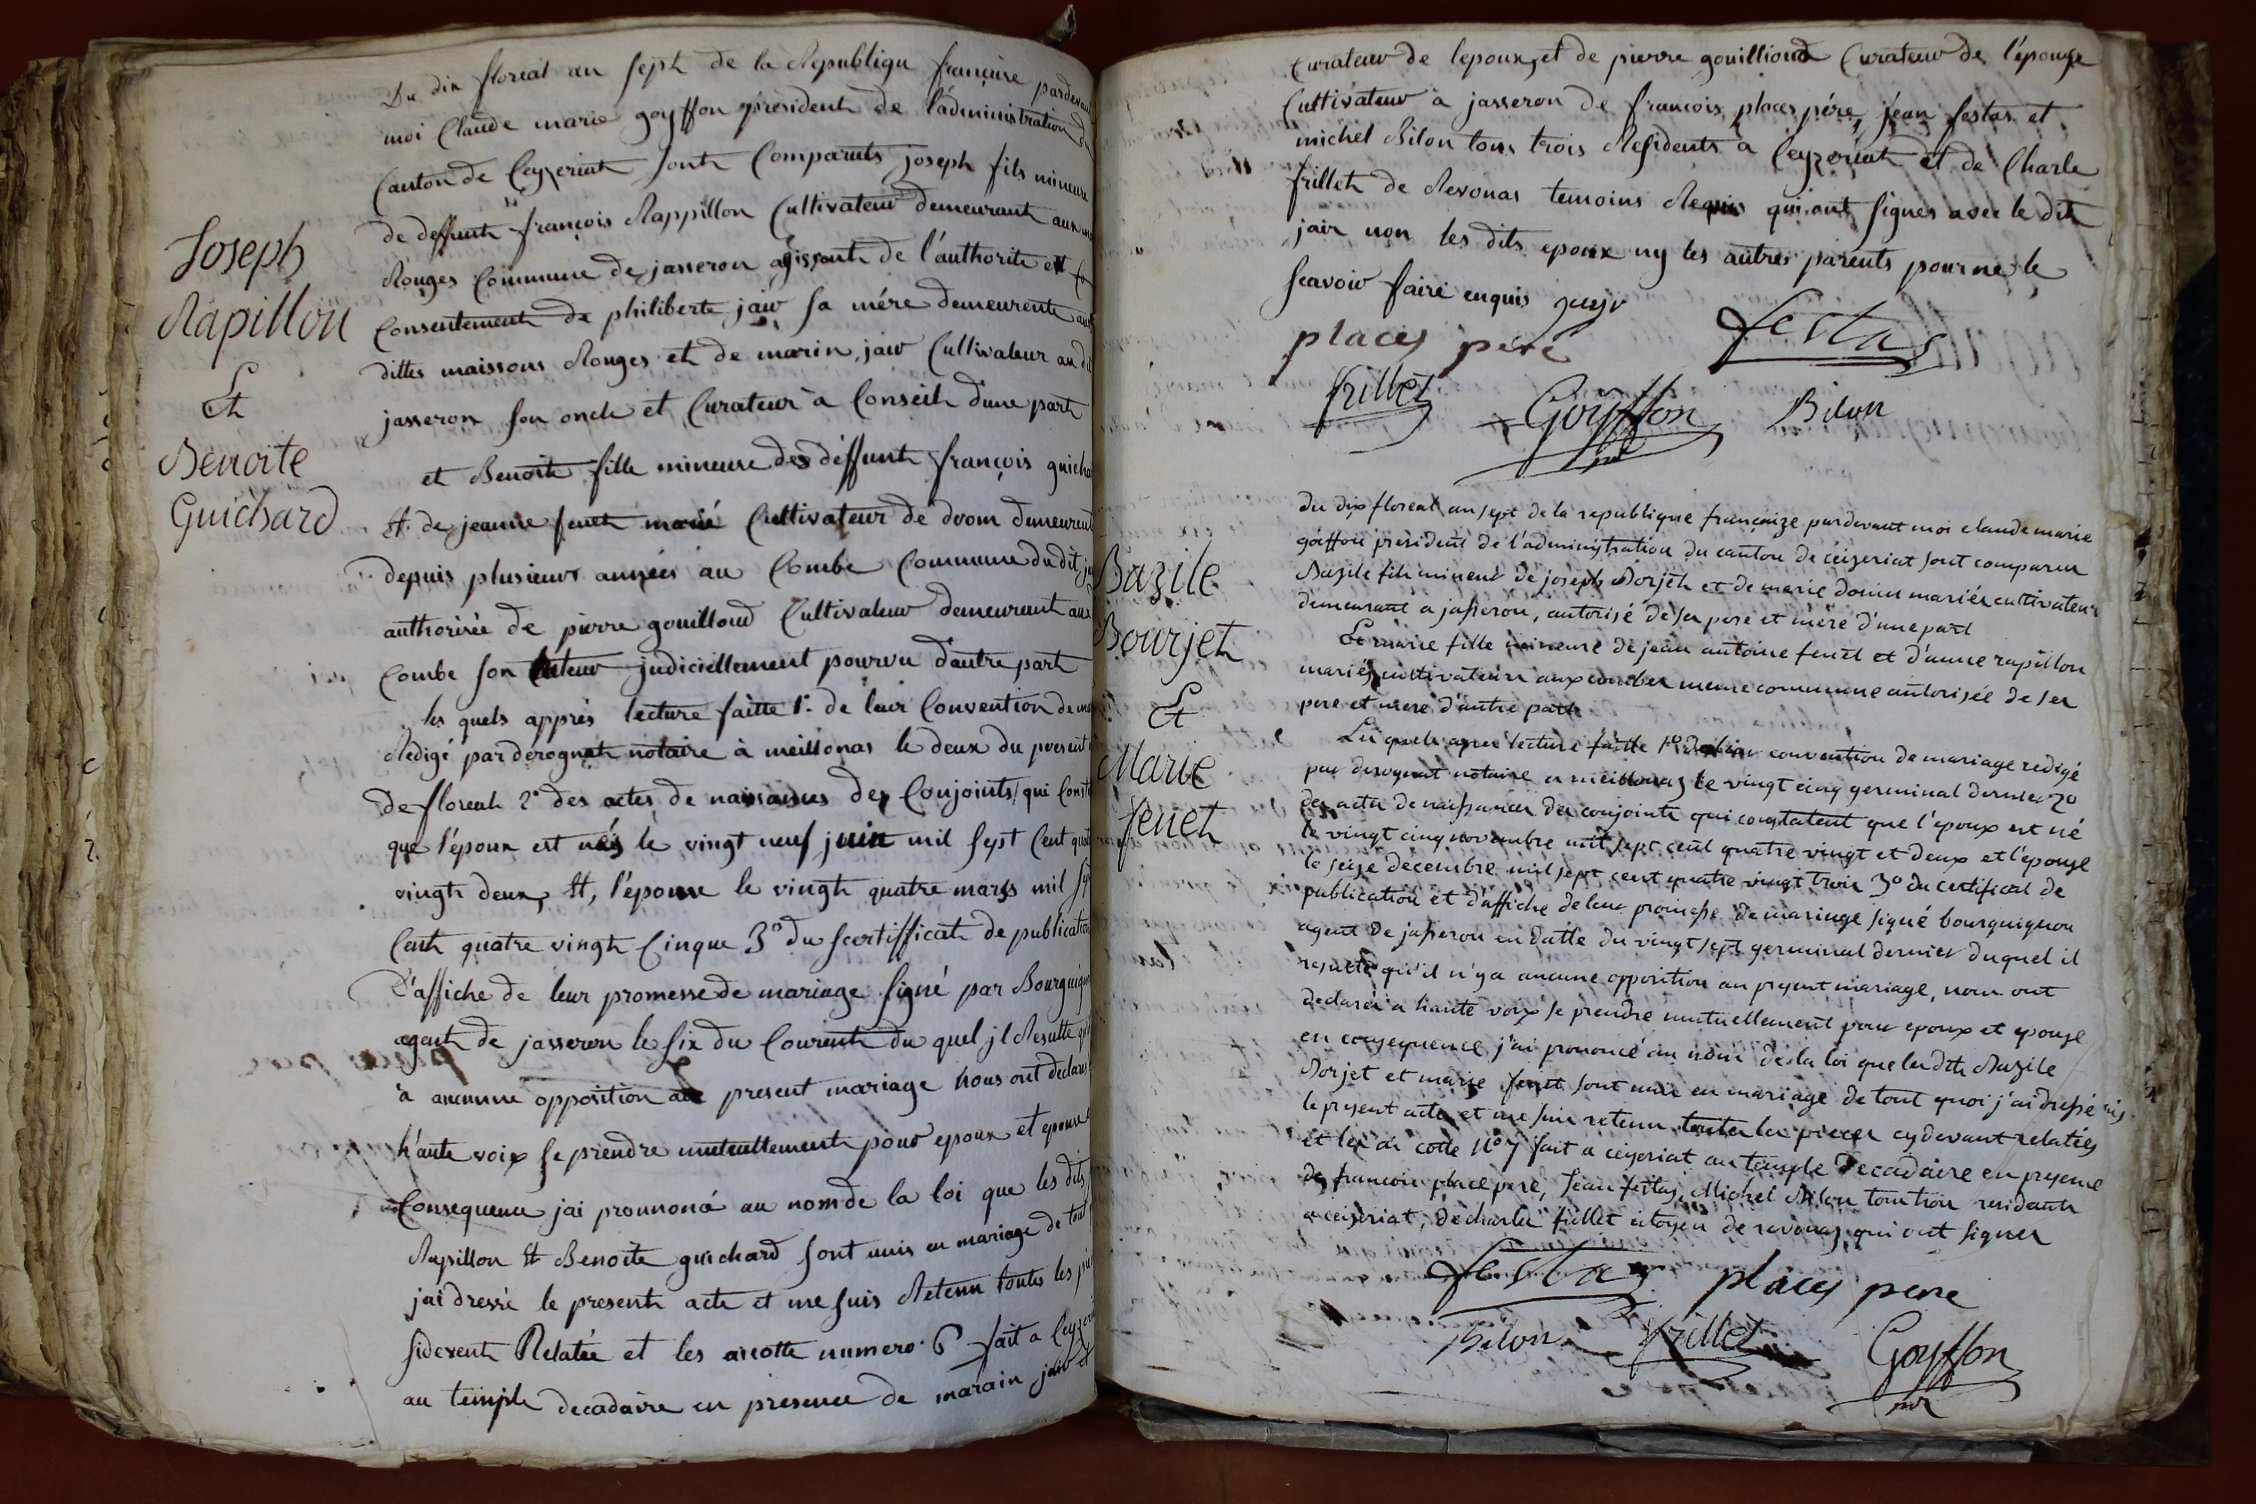 Joseph
Rapillon
Et
Benoite
Guichard
Du dix floreal an sept de la Republiqu françaire pardevant
moi Claude marie goyffon president de l'administration du
Canton de Ceyzeriat sont Comparuts joseph fils mineure
de deffunt françois Rappillon Cultivateur demeurant aux
Rouges Commune de jasseron agissant de l'authorite et
Consentement de philiberte jaiv sa mére demeurente aus
dittes maissons Rouges et de marin jaiv Cultivateur au dit
jasseron son oncle et Curateur a Conseil d'une part
et Benoite fille mineure des deffunt françois guichar
Et de jeanne fenet marié Cultivateur de drom demeurent
depuis plusieurs années au Combe Commune du dit
authorisée de pierre gouilloud Cultivateur demeurant aux
Combe son tuteur judiciellement pourvu d'autre part
les quels apprés lecture faitte 1° de leur Convention de
Redigé par derognat notaire à meillonas le deux du present
de floreal 2° des actes de naissances des Conjoints qui Const
que l'époux est nés le vingt neuf juin mil sept Cent quat
vingt deux, Et, l'épouse le vingt quatre marss mil sept
Cent quatre vingt Cinque 3° du scertifficat de publication
d'affiche de leur promesse de mariage signé par Bourguign
agent de jasseron le six du Courent du quel jl Resulte qu'il
à aucunne opposition au present mariage nous ont declarés
h'aute voix se prendre mutuellement pour epoux et epouse
Consequence jai prounoncé au nom de la loi que les dits
Rapillon Et Benoite guichard sont unis en mariage de tout
jai dressé le present acte et me suis Retenu toutes les
sidevent Relatée et les aicotte numero 6 fait a Ceyzeri
au temple decadaire en presence de marain jaiv et
Curateur de lepoux, et de pierre gouilliond Curateur de l'épouse
Cultivateur à jasseron de françois places pére, jean festas et
michel Bilon tous trois Residents a Ceyzeriat et de Charle
frillet de Revonas temoins Requis qui ont signes avec le dit
jaiv non les dits epoux ny les autres parents pour ne le
scavoir faire enquis
places pere
festas
frillet
Goyffon
Bilon
Bazile
Bourjet
Et
Marie
fenet
du dix floreal an sept de la republique françaize pardevant moi claude marie
goiffon president de l'administration du canton de ceizeriat sont comparus
Bazile fils mineur de joseph Borjet et de marie donin mariés cultivateur
demeurant a jasseron, autorisé de ses pere et mère d'une part
Et marie fille mineure de jean antoine fenet et d'anne rapillon
mariés cultivateurs aux combes meme commune autorisée de ses
pere et mere d'autre part
Les quels apres lecture faitte 1° de leur convention de mariage redigé
par derognat notaire a meillonas le vingt cinq germinal dernier 2°
des actes de naissances des conjoints qui constatent que l'epoux est né
le vingt cinq novembre mil sept cent quatre vingt et deux et l'epouse
le seize decembre mil sept cent quatre vingt trois 3° du certificat de
publication et d'affiche de leur promesse de mariage signé bourguignon
agent de jasseron en datte du vingt sept germinal dernier duquel il
resulte qu'il n'y a aucune opposition au present mariage, nous ont
declarés a haute voix se prendre mutuellement pour epoux et epouse
en consequence j'ai prononcé au nom de la loi que lesdts Bazile
Borjet et marie fenet sont unis en mariage de tout quoi j'ai dressé
le present acte et me suis retenu toutes les pieces cydevant relatées
et les ai cotte N° 7 fait a ceizeriat au temple decadaire en presence
de francois place pere, Jean festas, Michel Bilon tous trois residants
a ceizeriat, de charle frillet citoyen de revonas qui ont signes
festas
places pere
Bilon
frillet
Goyffon